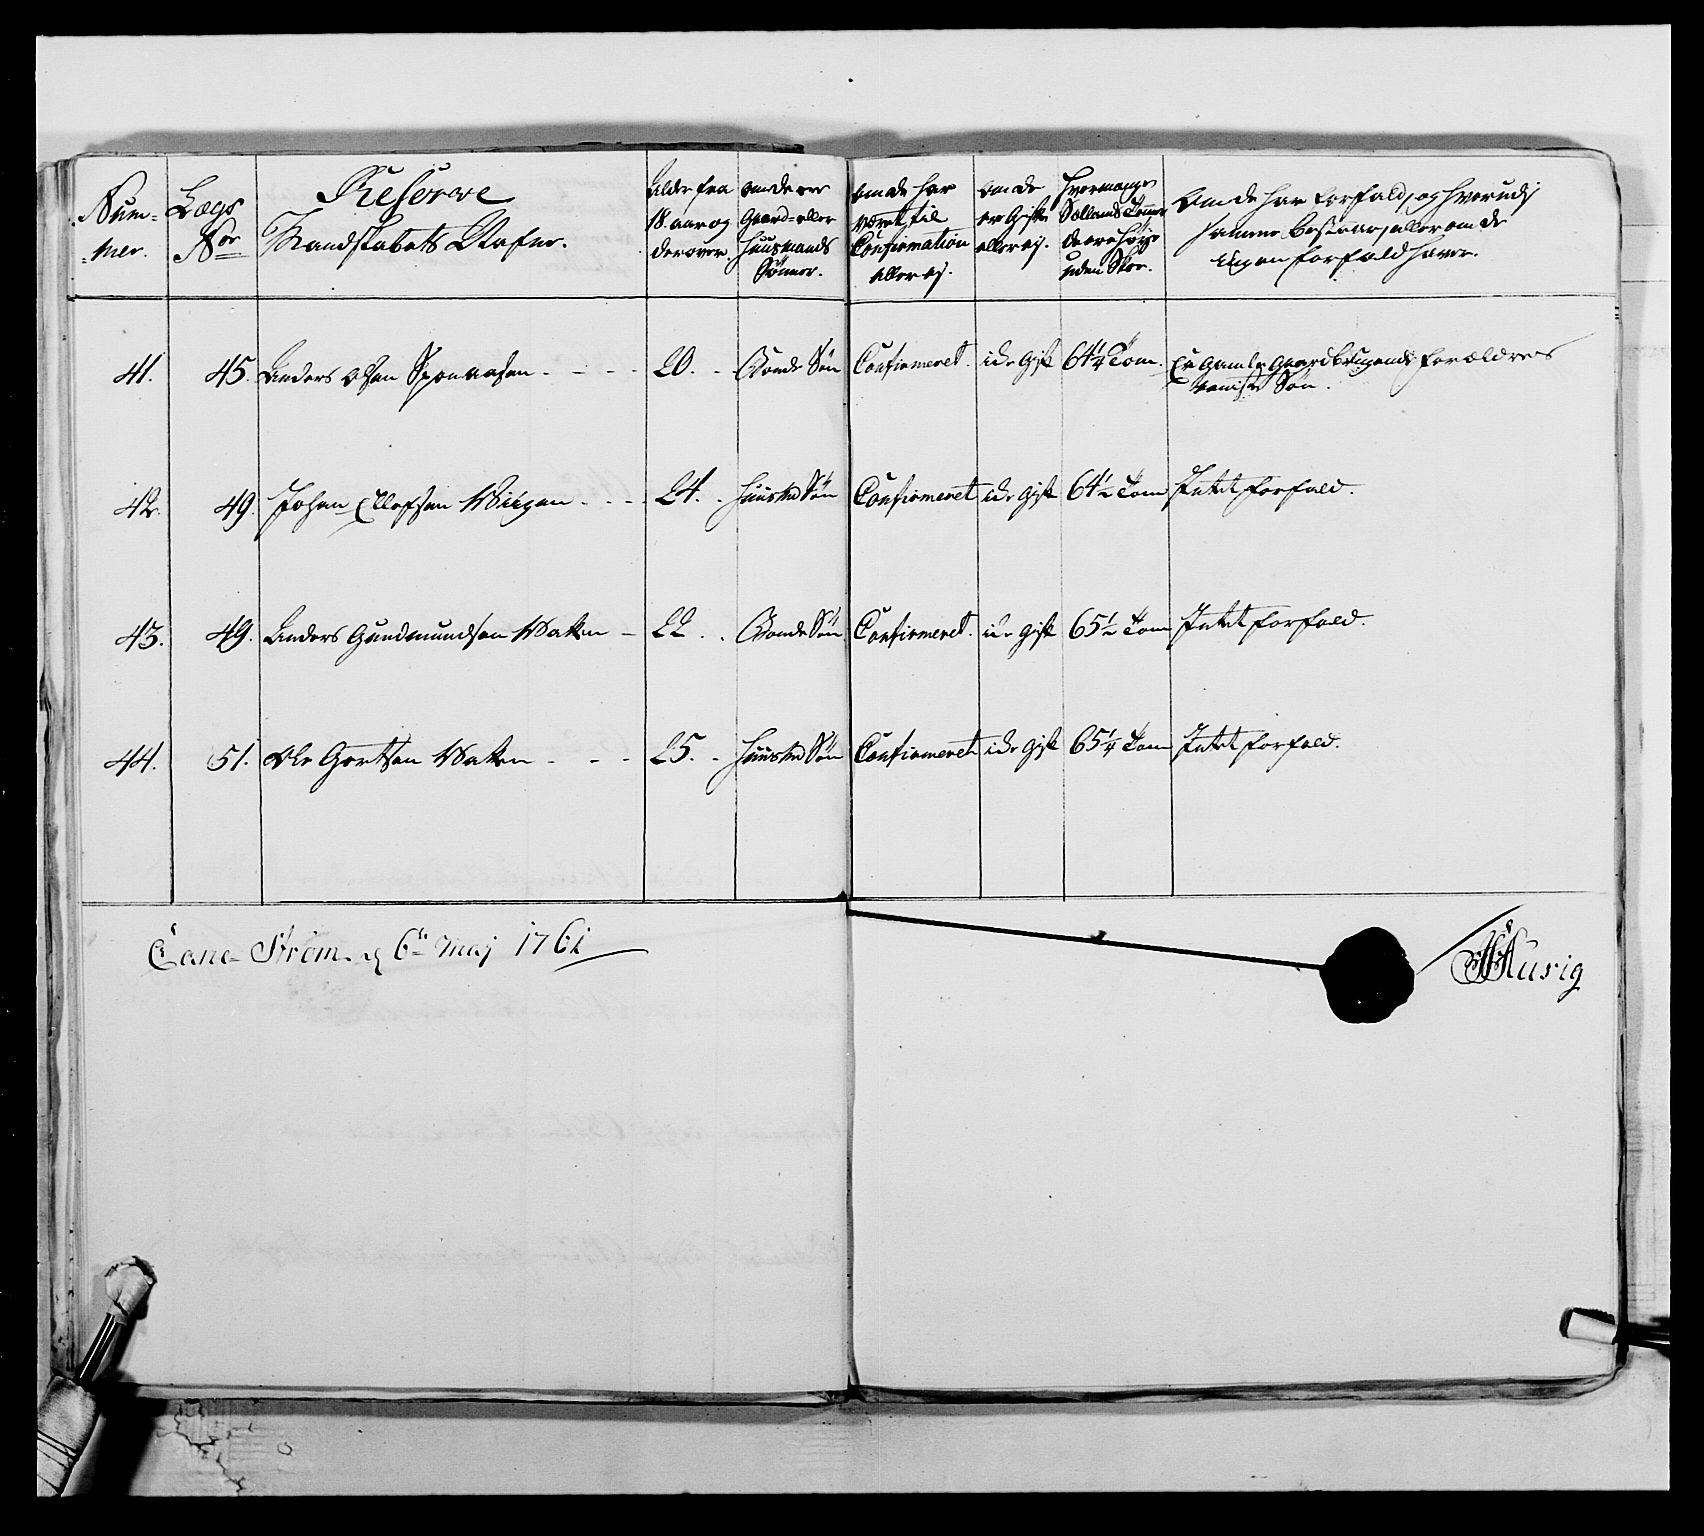 Num-
mer.
Lægs
No
Reserve
Mandskabets Nafne.
Alder fra
18. aar og
derover.
om de ere
Gaard- eller
Huusmands
Sønner.
om de har
været til
Confirmation
eller ej.
om de
ere Gifte
eller ej.
Hvormange
Sællands Tommer
de ere høje
uden Skoe.
Om de har forfald, og hvorudj
samme bestaar, eller om de
ingen forfald haver.
41. 45. Anders Olsen 20. Bonde Søn Confirmeret. icke Gift 64¼ Tom. Er Gamle Gaardbrugende Forældres
Søn.
42. 49. Johan Ellefsen 24. Huusmd Søn Confirmeret icke Gift 64½ Tom Intet forfald.
43. 49. Anders Gundmundsen Watten 22. Bonde Søn Confirmeret. icke Gift 65½ Tom Intet forfald.
44. 51. Ole Watten 25. Huusmd Søn Confirmeret icke Gift 65¼ Tom Intet forfald.
Strøm d 6te Maj 1761